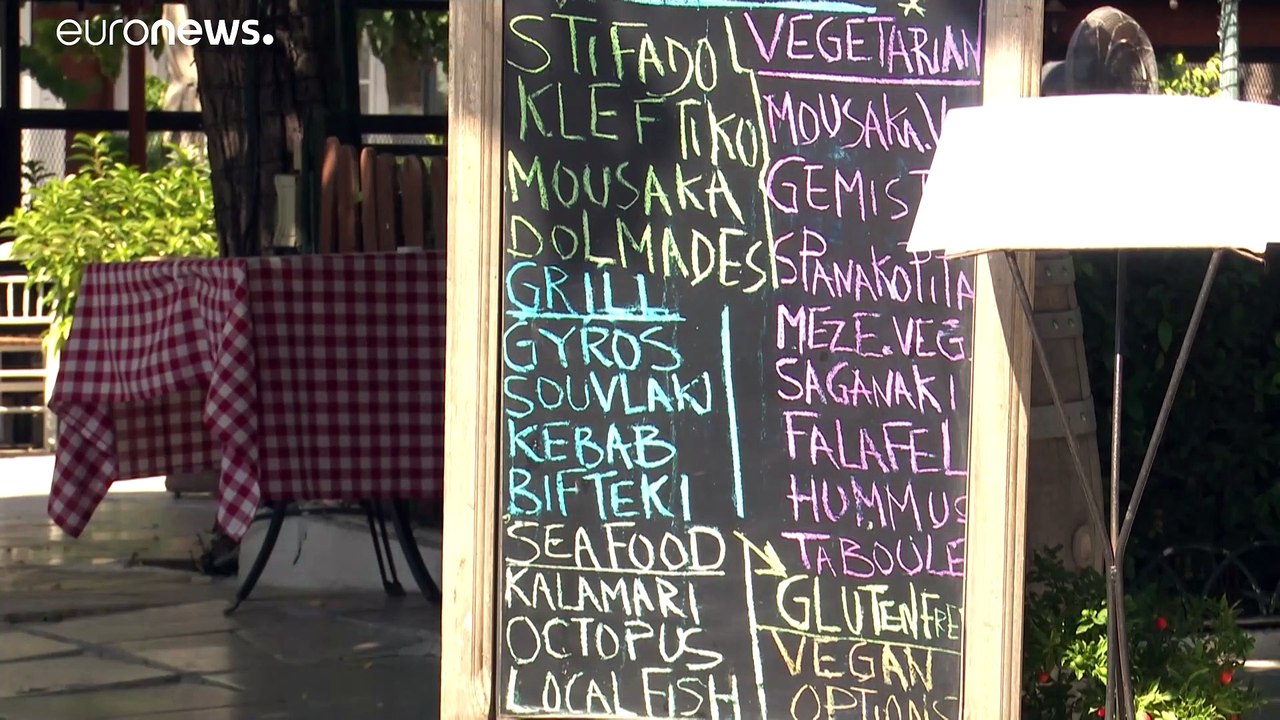 euronews.
STIFADO
KLEFTIKO
MOUSAKA
DOLMADES
GRILL
GYROS
SOUVLAKI
KEBAB
BIFTEKI
SEAFOOD
KALAMARI
OCTOPUS
LOCAL FISH
VEGETARIAN
MOUSAKA.V
GEMIST
SPANAKOPITA
MEZE.VEG
SAGANAKI
FALAFEL
HUMMUS
TABOULE
GLUTEN FREE
VEGAN
OPTIONS